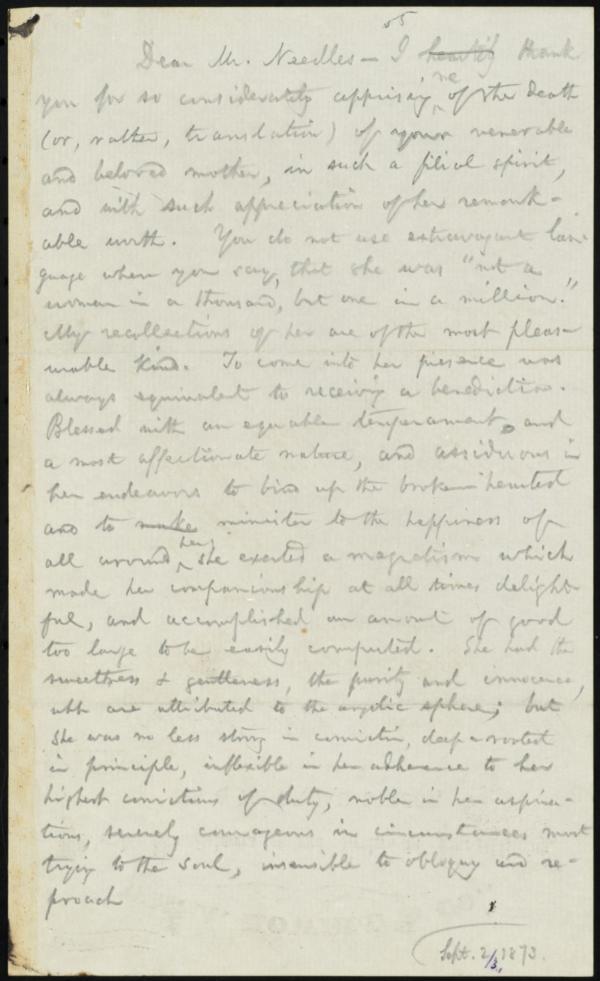 55
Dear Mr. Needles — I heartily thank
you for so considerately apprising me of the death
(or, rather, translation) of your venerable
and beloved mother, in such a filial spirit,
and with such appreciation of her remark-
able worth. You do not use extravagant lan-
guage when you say, that she was "not a
woman in a thousand, but one in a million."
My recollections of her are of the most pleas-
urable kind. To come into her presence was
always equivalent to receiving a benediction.
Blessed with an equable temperament, and
a most affectionate nature, and assiduous in
her endeavors to bind up the broken-hearted
and to make minister to the happiness of
all around her, she exerted a magnetism which
made her companionship at all times delight-
ful, and accomplished an amount of good
too large to be easily computed. She had the
sweetness & gentleness, the purity and innocence,
wh are attributed to the angelic sphere; but
she was no less strong in conviction, deep-rooted
in principle, inflexible in her adherence to her
highest convictions of duty, noble in her aspira-
tions, serenely courageous in circumstances most
trying to the soul, insensible to obloquy and re-
proach
Sept. 2/3, 1873.